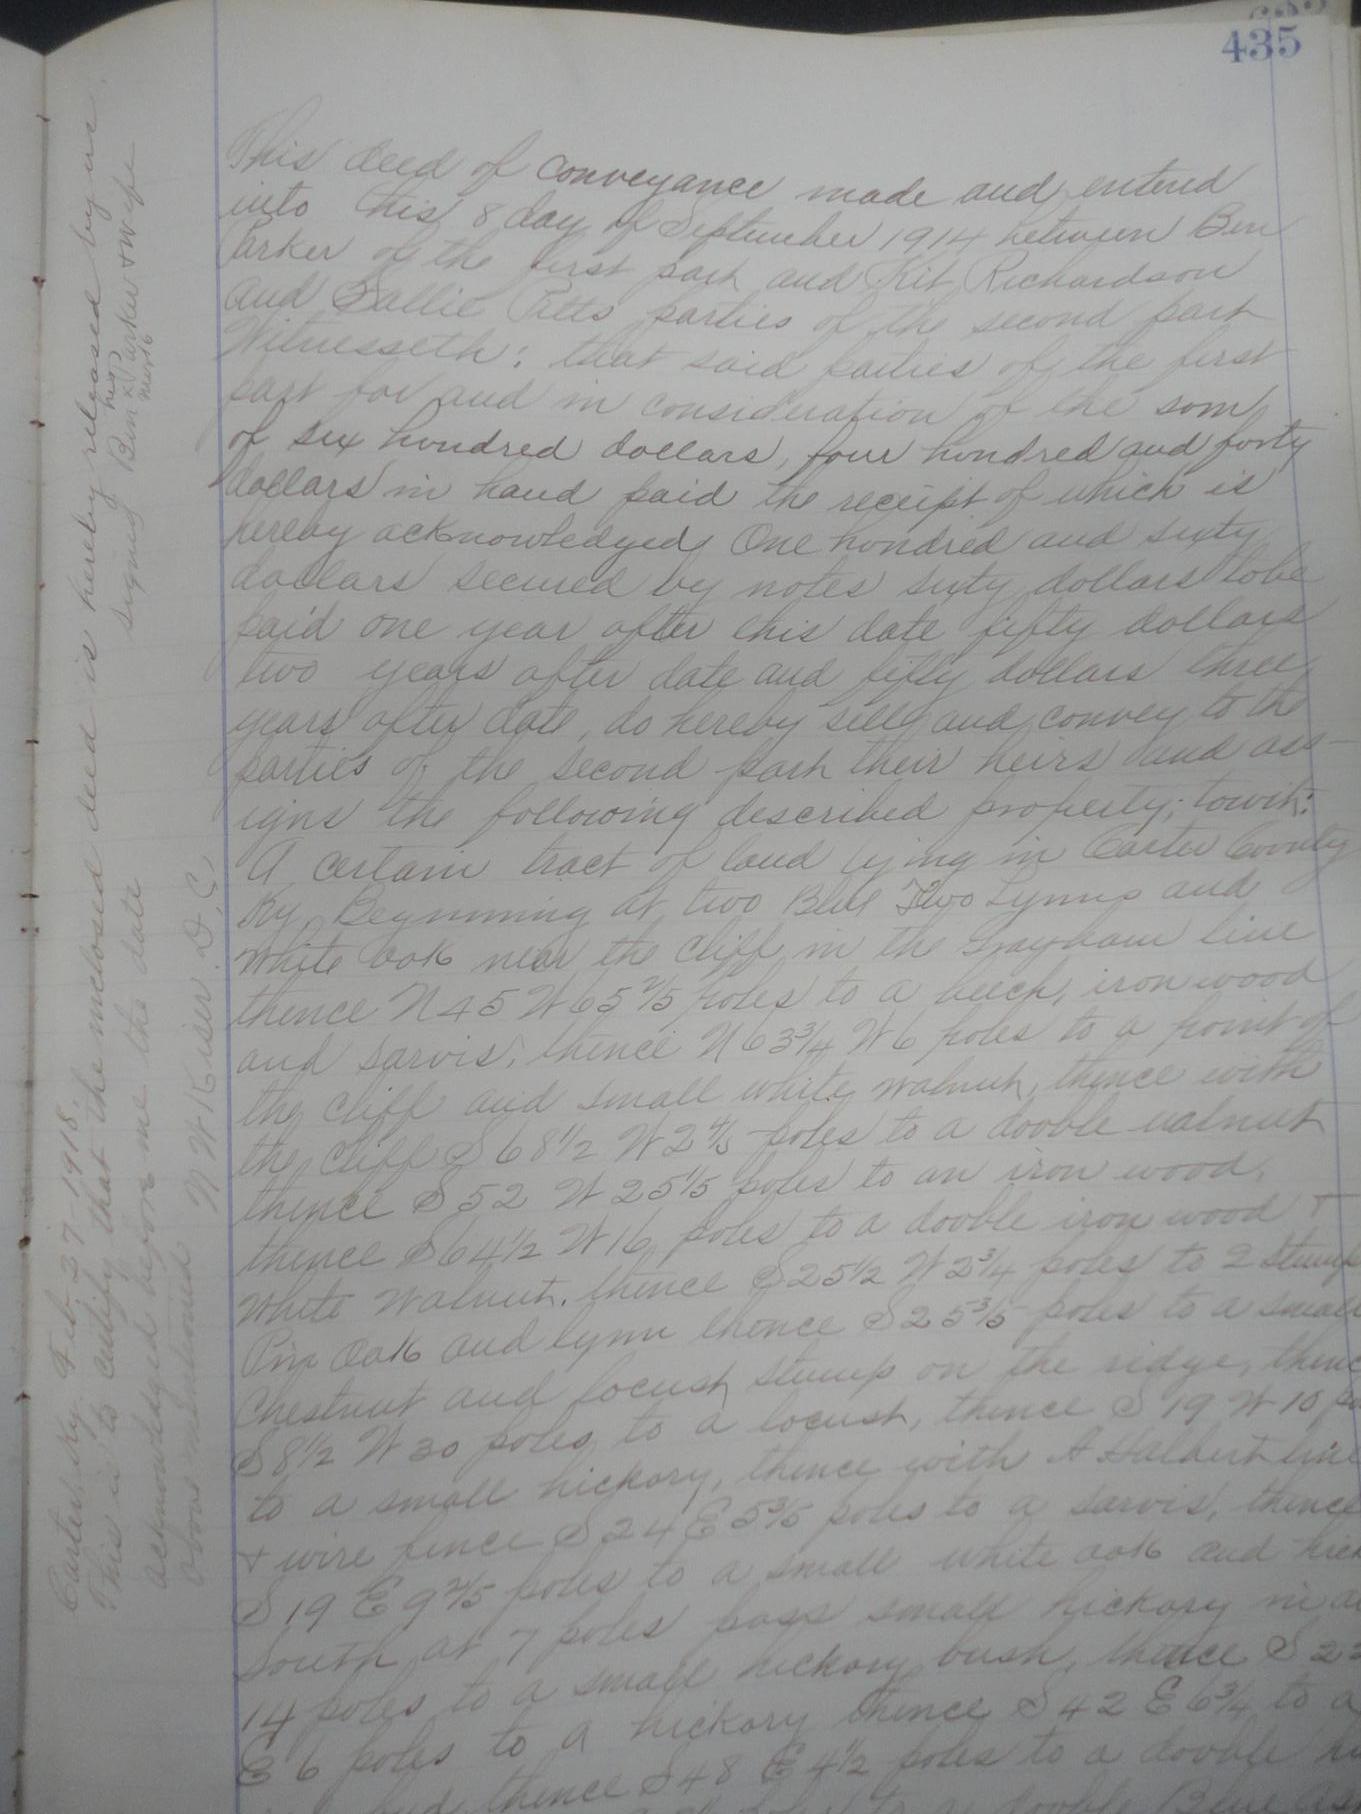 435
This deed of conveyance made and entered
into this 8 day of September 1914 between Ben
Parker of the first part and Kit Richardson
and Sallie Pitts parties of the second part
Witnesseth: that said parties of the first
part for and in consideration of the som
of six hondred dollars, four hondred and forty
dollars in hand paid the receipt of which is
hereby acknowledged One hondred and sixty
dollars secured by notes sixty dollars tobe
paid one year after this date fifty dollars
two years after date and fifty dollars three
years after date, do hereby sell and convey to the
parties of the second part their heirs and ass-
igns the following described property; towit:
A certain tract of land lying in Carter County
Ky. Beginning at two Blue Two Lynns and
White oak near the cliff in the Grayham line
thence N 45 W 65 2/5 poles to a beech, iron wood
and sarvis, thence N 63 3/4 W 6 poles to a point of
the cliff and small white walnut, thence with
the cliff S 68 1/2 W 2 4/5 poles to a dooble walnut
thence S 52 W 25 1/5 poles to an iron wood,
thence S 64 1/2 W 16 poles to a dooble iron wood +
White Walnut. thence S 25 1/2 W 2 3/4 poles to 2 stump
Pin Oak and lynn thence S 2 5 3/5 poles to a small
Chestnut and locust stump on the ridge, thence
S 8 1/2 W 30 poles to a locust, thence S 19 W 10
to a small hickory, thence with A Halbert line
+ wire fence S 24 E 5 3/5 poles to a sarvis, thence
S 19 E 9 2/5 poles to a small white oak and
South at 7 poles pass small hickory in
14 poles to a small hickory bush, thence S 22
E 6 poles to a hickory thence S 42 E 6 3/4 to a
thence S 48 E 4 1/2 poles to a dooble
to a dooble Blue
Carter, Ky. Feb-27-1918.
This is to certify that the inclosed deed is hereby released by us
acknowledged before me the date signing Ben his x mark Parker + wife
above mentioned W W Kiser D.C.